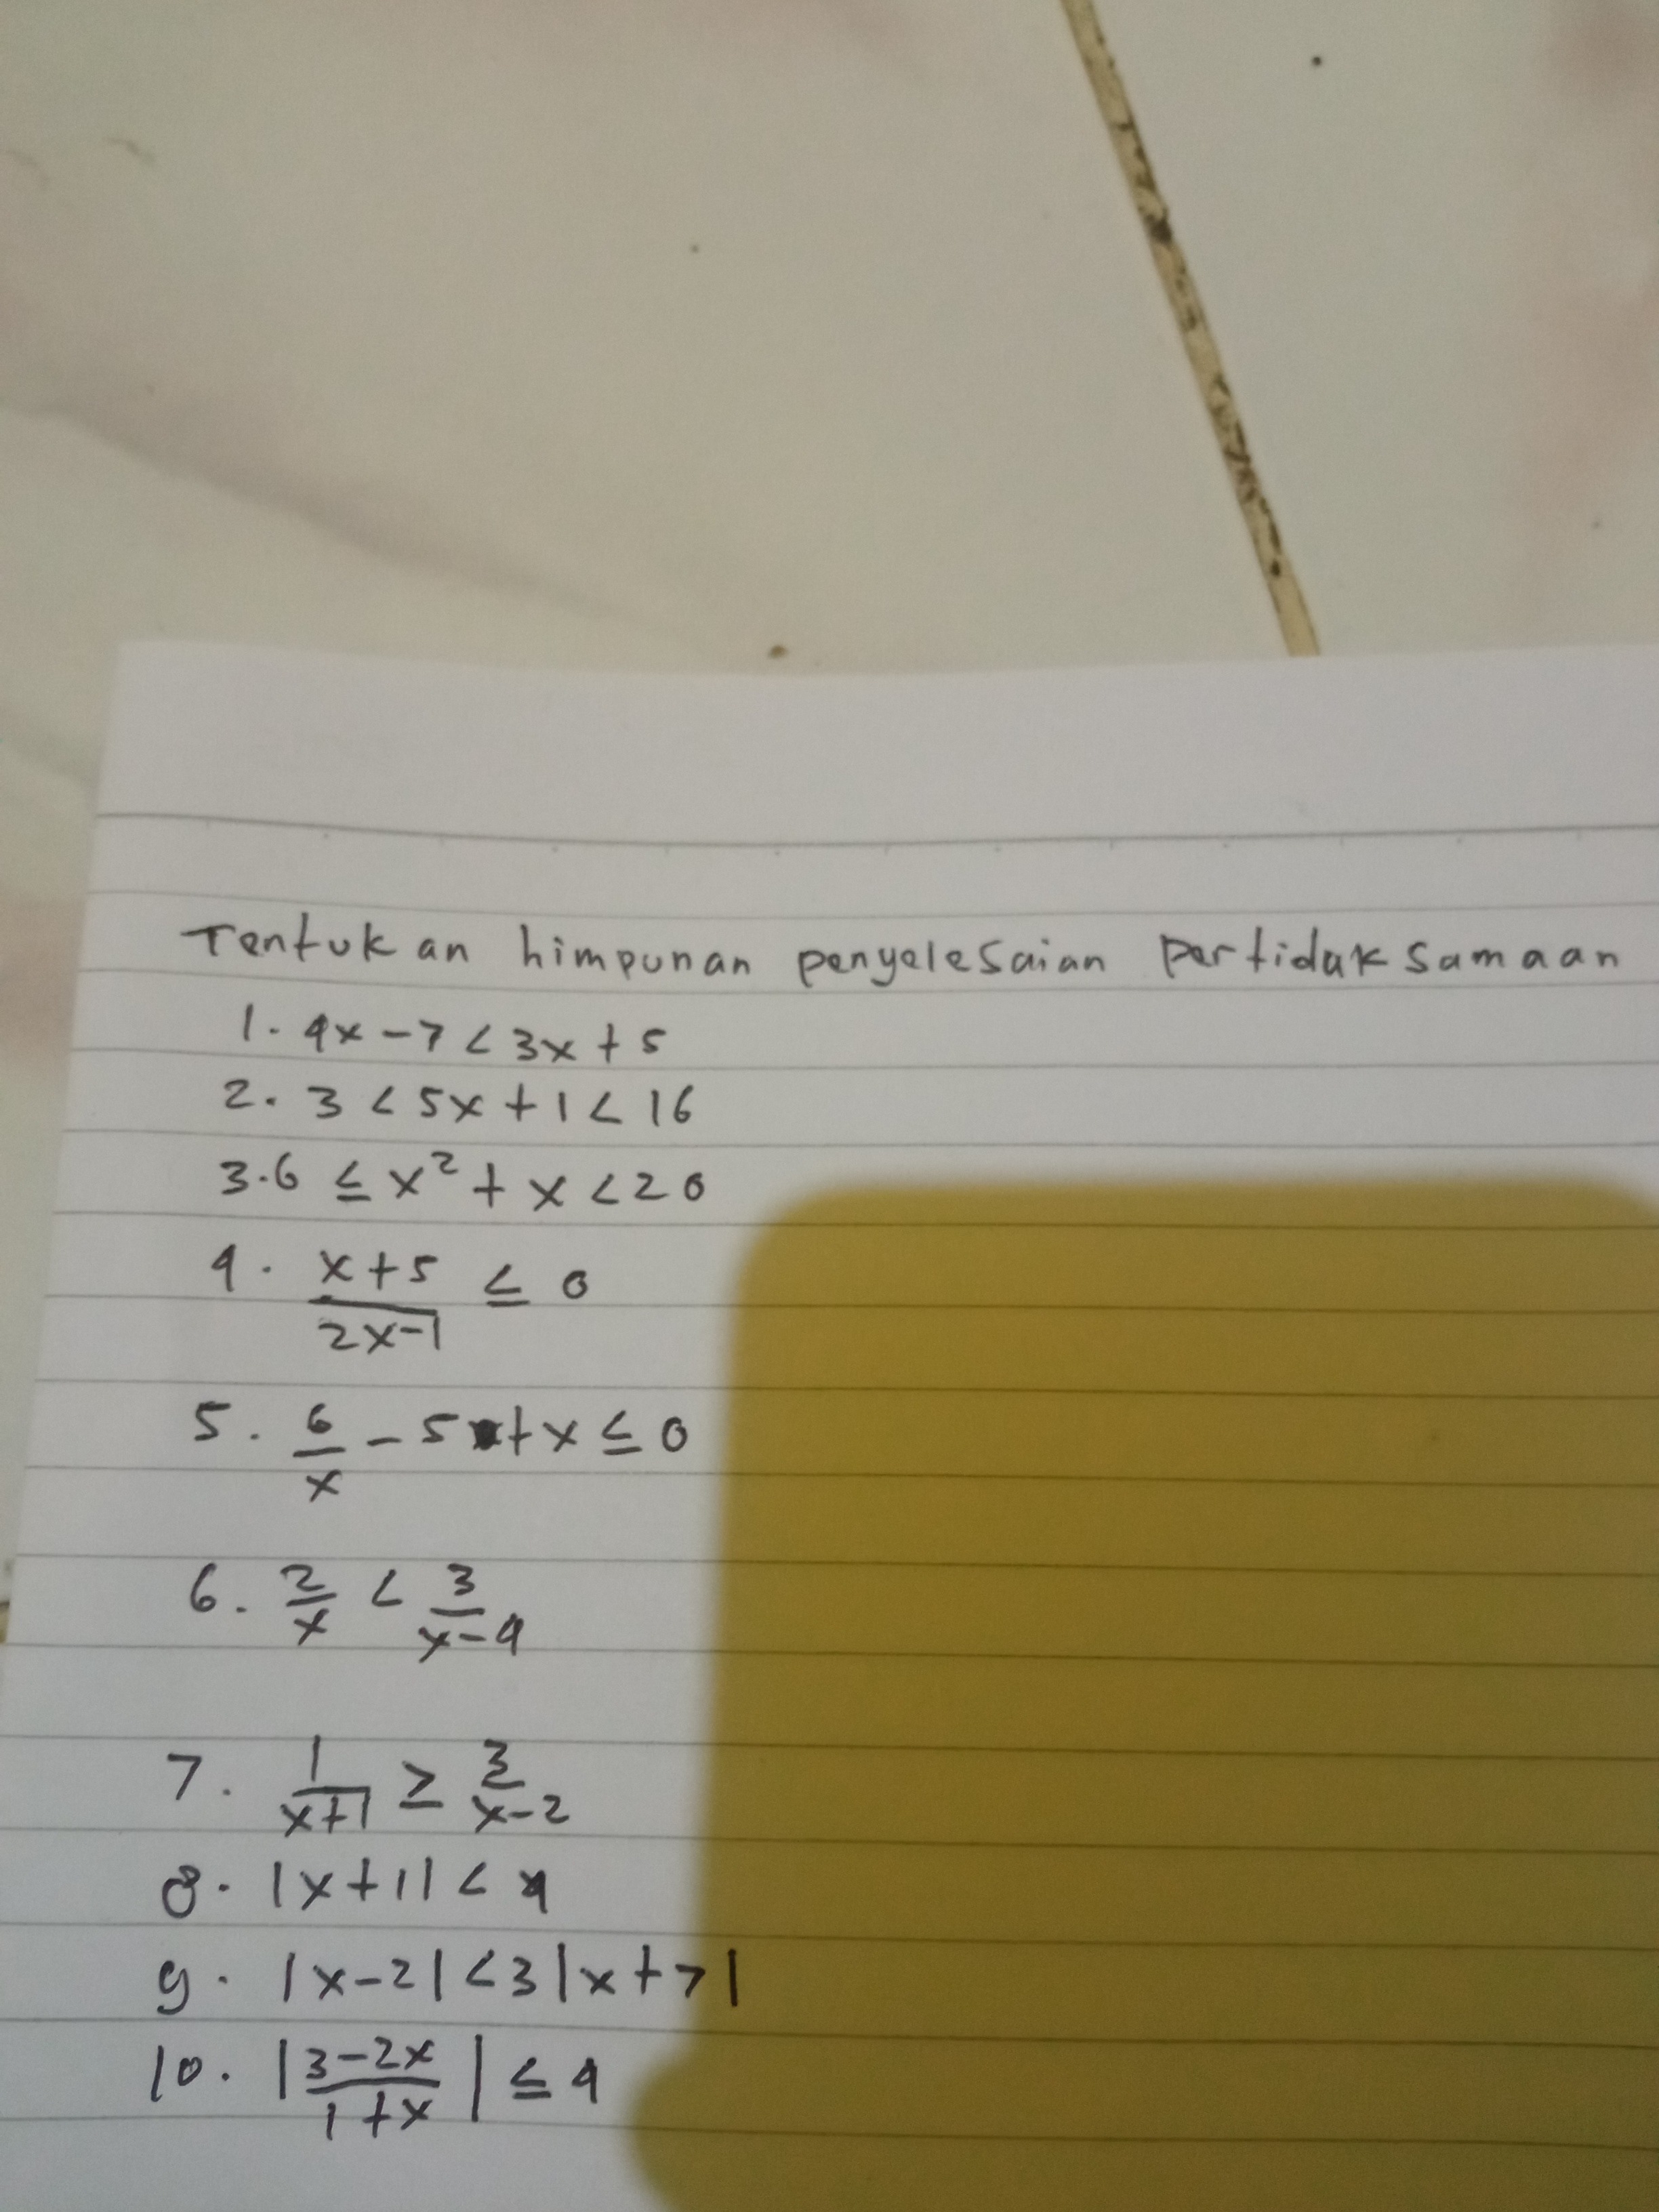 Tentukan himpunan penyelesaian pertidaksamaan
1. 4x - 7 < 3x + 5
2. 3 < 5x + 1 < 16
3. 6 ≤ x² + x < 20
4. (x+5)/(2x-1) ≤ 0
5. 6/x - 5 + x ≤ 0
6. 2/x < 3/(x-4)
7. 1/(x+1) ≥ 3/(x-2)
8. |x+1| < 4
9. |x-2| < 3|x+7|
10. |(3-2x)/(1+x)| ≤ 4